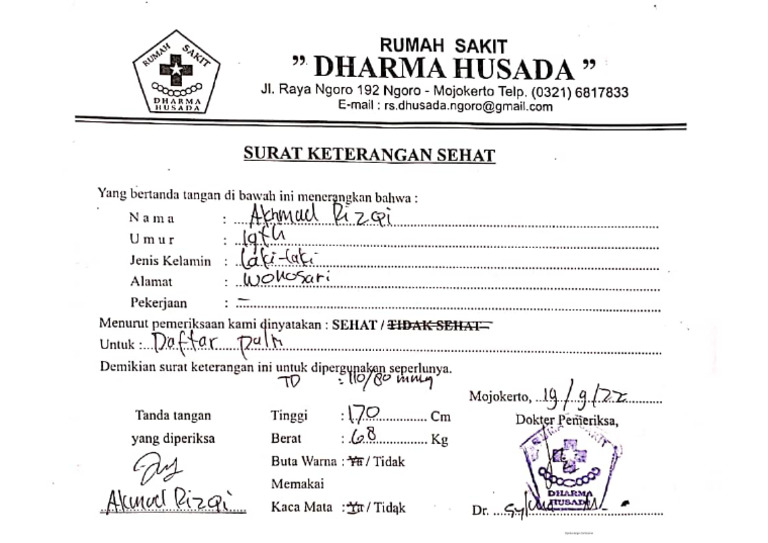 RUMAH SAKIT
DHARMA
HUSADA
RUMAH SAKIT
" DHARMA HUSADA "
Jl. Raya Ngoro 192 Ngoro - Mojokerto Telp. (0321) 6817833
E-mail : rs.dhusada.ngoro@gmail.com
SURAT KETERANGAN SEHAT
Yang bertanda tangan di bawah ini menerangkan bahwa :
Nama : Akhmad Rizqi
Umur : 19th
Jenis Kelamin : Laki-laki
Alamat : Wonosari
Pekerjaan : -
Menurut pemeriksaan kami dinyatakan : SEHAT / TIDAK SEHAT
Untuk : Daftar
Demikian surat keterangan ini untuk dipergunakan seperlunya.
TD : 110/80 mmHg
Mojokerto, 19/9/22
Tanda tangan
yang diperiksa
Akhmad Rizqi
Tinggi : 170 Cm
Berat : 68 Kg
Buta Warna : Ya / Tidak
Memakai
Kaca Mata : Ya / Tidak
Dokter Pemeriksa,
RUMAH SAKIT
DHARMA
HUSADA
Dr.